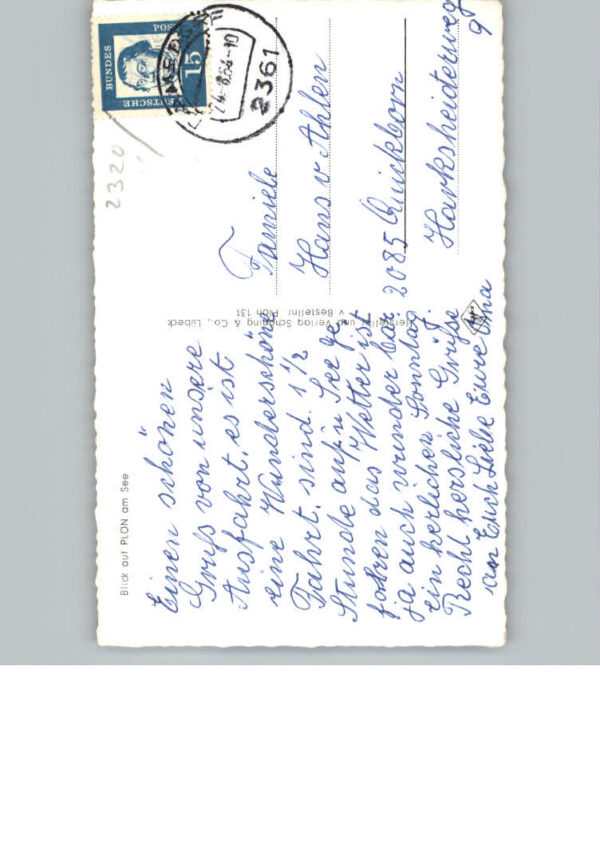 Blick auf PLÖN am See
Einen schönen
Gruß von unsere
Ausfahrt, es ist
eine Wunderschöne
Fahrt, sind 1 1/2
Stunde auf'n See ge
fahren das Wetter ist
ja auch wunder bar
ein herlicher Sonntag.
Recht hersliche Grüße
an Euch Liebe Eure Oma
Hersteller und Verlag Schöning & Co., Lübeck
v Bestellnr. Plön 131
DEUTSCHE
BUNDES
POST
15
24.-8.64-10
2361
2320
Familie
Hans v Ahlen
2085 Quickborn
Harksheiderweg
9